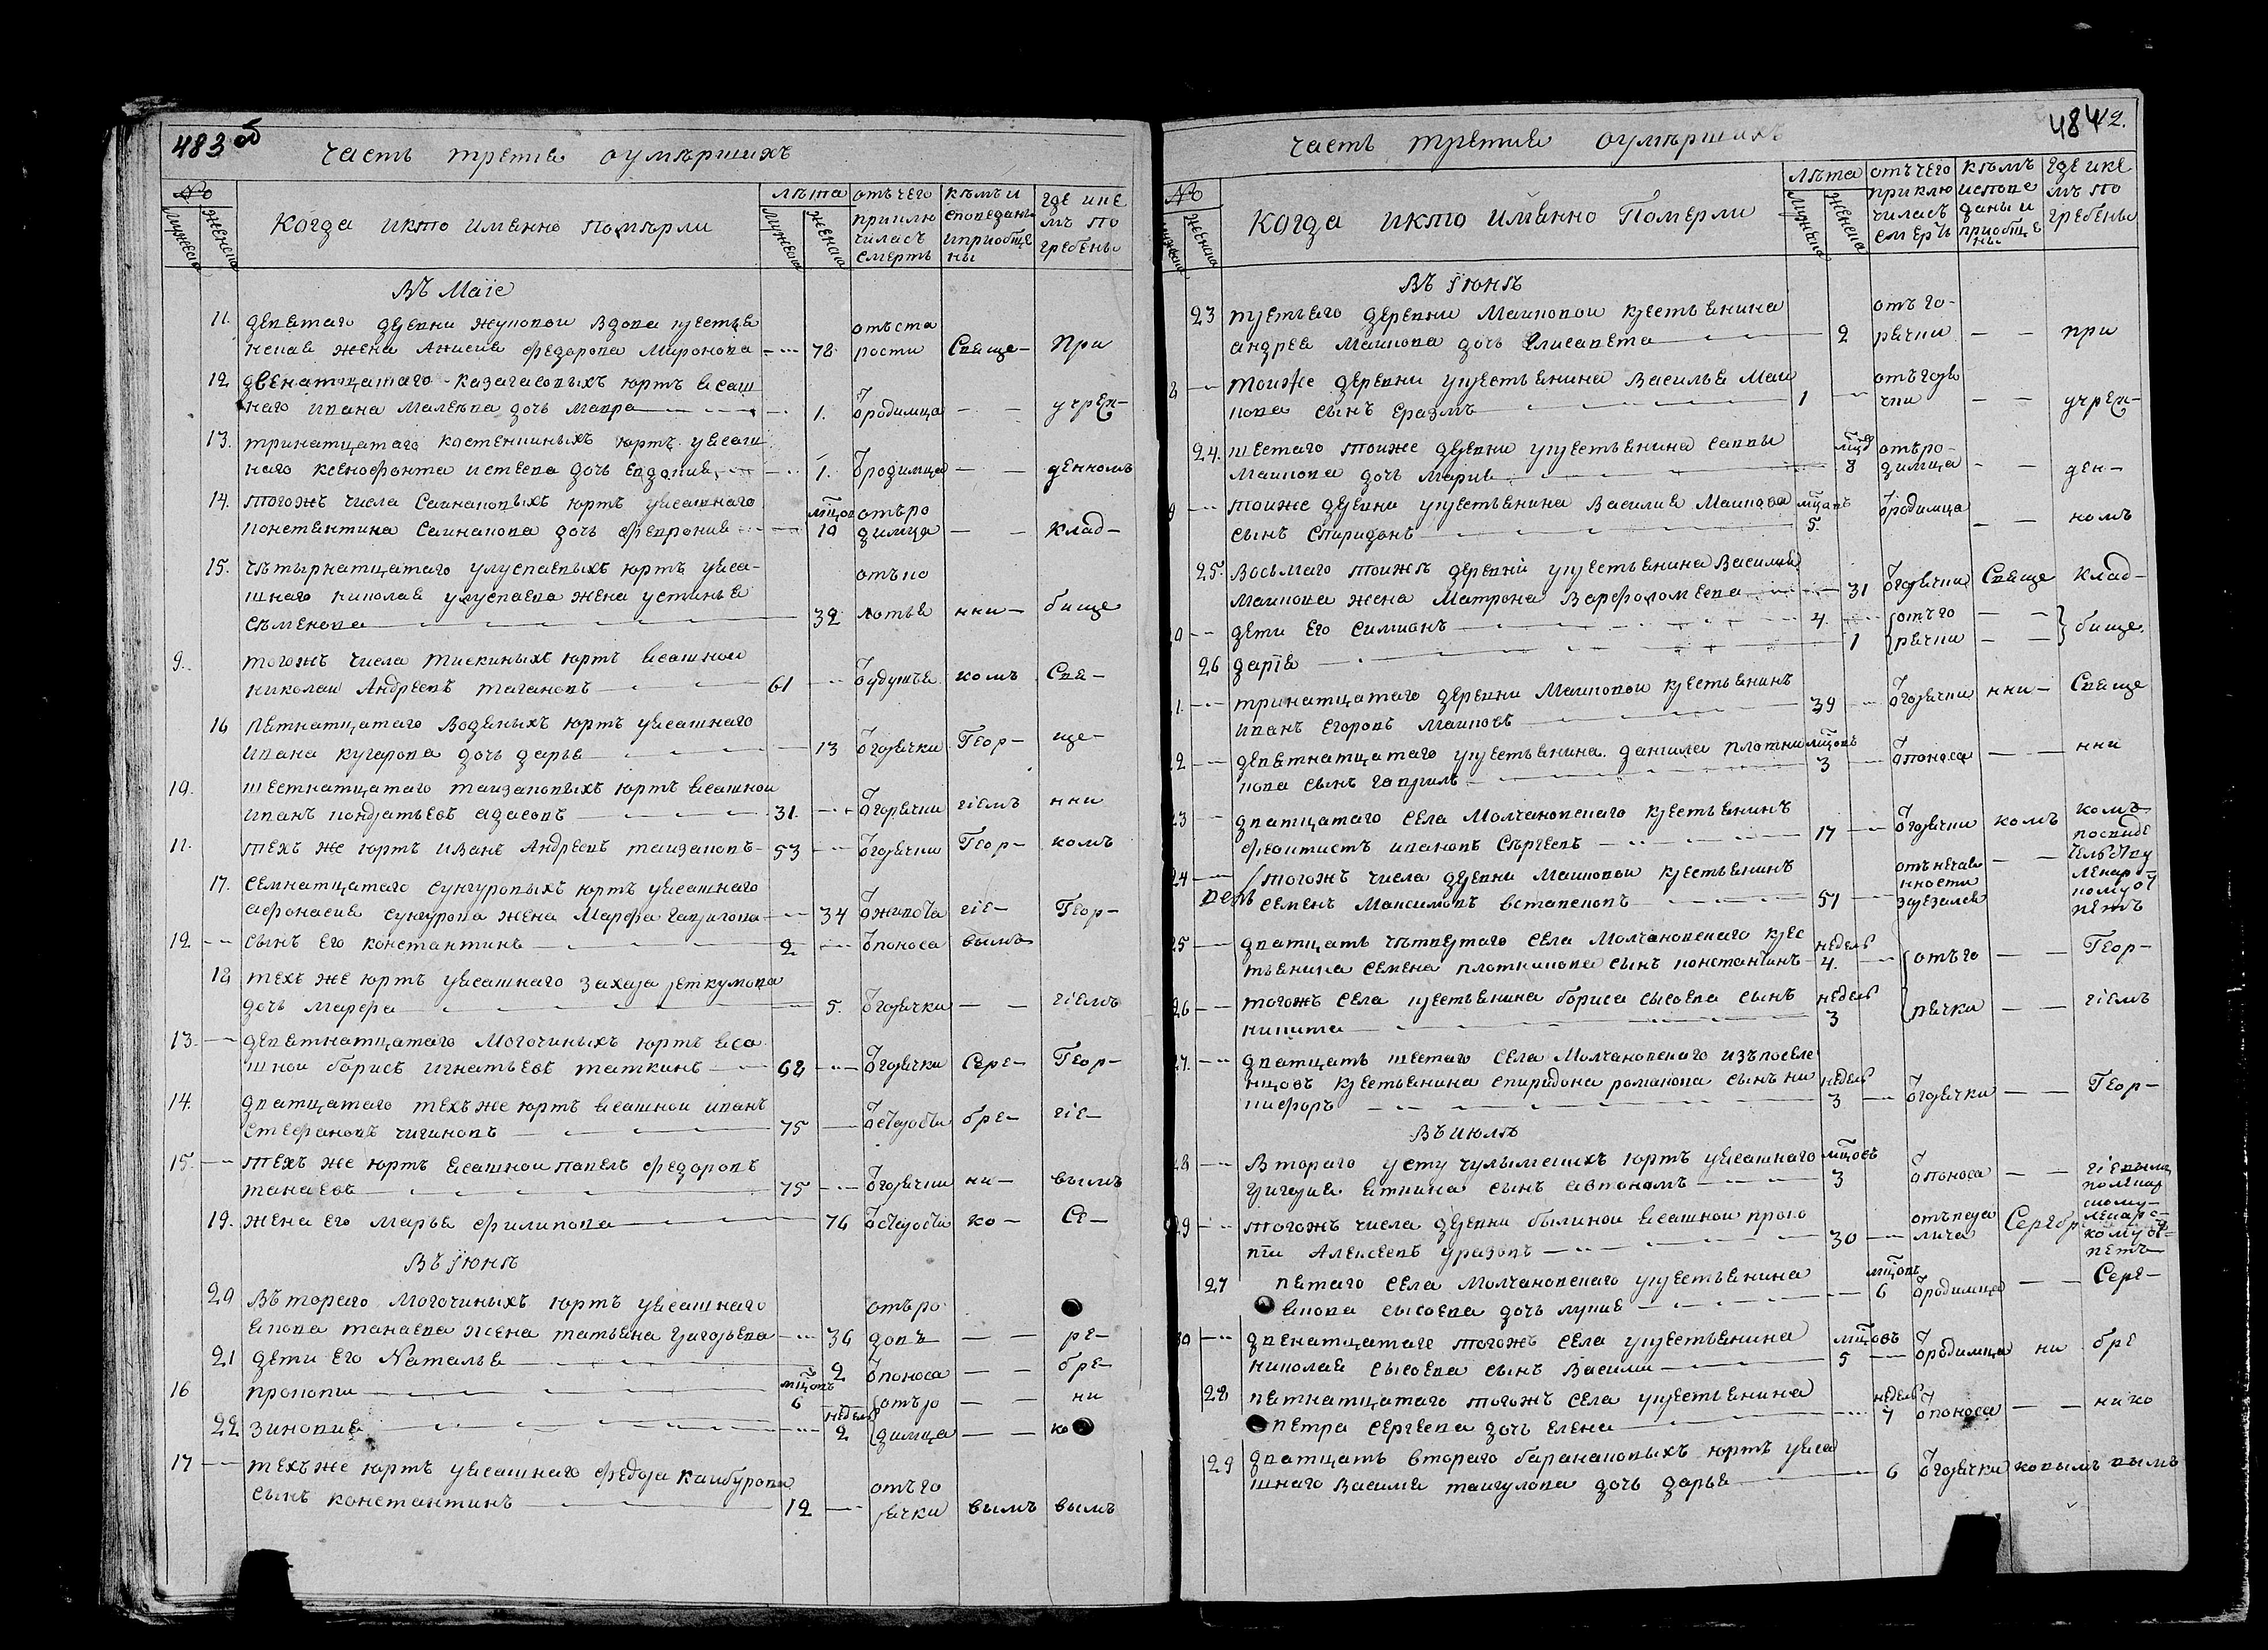 483 об
Часть третıя оумѣршихъ
№
Мужеска
Женска
Когда икто имянно помѣрли
лѣта
Мужеска
Женска
отъ чего приклю чилась смерть
кѣмъ и споведаны и приобще ны
где ике мъ по гребены
Въ Маіе
11. девятаго деревни жуковои вдова крестья
нская жена Анисия Федорова Миронова 78 отъ ста рости Свяще- При
12 двенатцатаго казагасовыхъ юртъ ясаш
наго ивана Малеева дочь Мавра 1. ѿродимца учреж-
13. тринатцатаго костенкиныхъ юртъ уясаш
наго ксенофонта истеева дочь Евдокия 1. ѿродимца денномъ
14. тогожъ числа Саинаковыхъ юртъ уясашнаго
константина Саинакова дочь Феврония мцов 10 отъ ро димца Клад-
15. чѣтырнатцатаго улускаевыхъ юртъ уяса-
шнаго николая улускаева жена устинья
сѣменова 32 отъ ко лотья нни- бище
9. тогожъ числа тискиныхъ юртъ ясашнои
николаи Андреевъ тагановъ 61 ѿудушья комъ Свя-
16 пятнатцатаго Водяныхъ юртъ уясашнаго
ивана кугарова дочь дарья 13 ѿгорячки Геор- ще-
10. шестнатцатаго таизаковыхъ юртъ ясашнои
иванъ кондратьевъ адасовъ 31. ѿгорячки гіемъ нни
11. тѣхъ же юртъ иванъ Андреевъ таизаковъ 53 ѿгорячки Геор- комъ
17. семнатцатаго сунгуровыхъ юртъ уясашнаго
афонасия сунгурова жена Марфа гаврилова 34 ѿживота гіе- Геор-
12. сынъ его константинъ 2 ѿпоноса вымъ
18 тѣхъ же юртъ уясашнаго захара еткумова
дочь марфа 5. ѿгорячки гіемъ
13. девятнатцатаго Могочиныхъ юртъ яса
шнои борисъ игнатьевъ таткинъ 68 ѿгорячки Сере- Геор-
14. дватцатаго тѣхъ же юртъ ясашнои иванъ
стефановъ чигиновъ 75 ѿстарости бре- гіе-
15. тѣхъ же юртъ ясашнои павелъ федоровъ
танаевъ 75 ѿгорячки ни- вымъ
19. жена его марья филипова 76 ѿстарости ко- Се-
Въ Іюнѣ
20 Въ тораго могочиныхъ юртъ уясашнаго
якова танаева жена татьяна григорьева 36 отъ ро довъ ре-
21 дети его Наталья 2 ѿпоноса бре-
16 прокопии мцовъ 6 отъ ро ни
22 зиновия недель 2 димца ко
17 тѣхъ же юртъ уясашнаго федора каибурова
сынъ константинъ 12 отъ го рячки вымъ вымъ
484 12.
Часть третия оумѣршихъ
№
Женска
Когда икто имянно Померли
лѣта
Мужеска
Женска
отъ чего приклю чилась смерть
кѣмъ испове даны и приобще ны
где ике мъ по гребены
Въ Іюнѣ
23 третьяго деревни Маиковои крестьянина
андрея Маикова дочь Елисавета 2 отъ го- рячки при
8 тоиже деревни укрестьянина Василья Маи
кова сынъ Еразмъ 1 отъ горя чки учреж-
24. шестаго тоиже деревни укрестьянина саввы
Маикова дочь мария мцов 8 отъ ро- димца ден-
9 тоиже деревни укрестьянина Василия Маикова
сынъ спиридонъ мцовъ 5. ѿродимца номъ
25. Восьмаго тоижъ деревни укрестьянина Василия
Маикова жена Матрона Варфоломеева 31 ѿгорячки Свяще клад-
10 дети его симионъ 4. отъ го бище
26 дарія 1 рячки
11. тринатцатаго деревни Маиковои крестьянинъ
иванъ егоровъ маиковъ 39 ѿгорячки нни- Свяще
12 девятнатцатаго укрестьянина данила плотни
кова сынъ гаврилъ мцовъ 3 ѿпоноса нни
23 дватцатаго села Молчановскаго крестьянинъ
феоктистъ ивановъ Сѣргеевъ 17 ѿгорячки комъ комъ
24 тогожъ числа деревни Маиковои крестьянинъ
семенъ Максимовъ 51 отъ нечая нности зарезался
25 дватцать чѣтвертаго села Молчановскаго крес
тьянина семена плоткикова сынъ константинъ недель 4. отъ го Геор-
26 тогожъ села крестьянина бориса сысоева сынъ
никита недель 3 рячки гіемъ
27. дватцать шестаго села Молчановскаго изъ поселе
нцовъ крестьянина спиридона романова сынъ ни
кифоръ недель 3 ѿгорячки Геор-
Въ июлѣ
28 Втораго усту чулымскихъ юртъ уясашнаго
григория яткина сынъ автономъ мцовъ 3 ѿпоноса
29 тогожъ числа деревни былинои ясашнои проко
пїи Алексеевъ уразовъ 30 отъ пара лича Серебр
27 пятаго села молчановскаго укрестьянина
якова сысоева дочь лукия мцовъ 6 ѿродимца Сере-
30 двенатцатаго тогожъ села укрестьянина
николая сысоева сынъ Василии мцовъ 5 ѿродимца ни бре
28 пятнатцатаго тогожъ села укрестьянина
петра сергеева дочь елена недель 7 ѿпоноса нико
29 дватцать втораго баранаковыхъ юртъ уяса
шнаго василия таигулова дочь дарья 6 ѿгорячки ковымъ вымъ